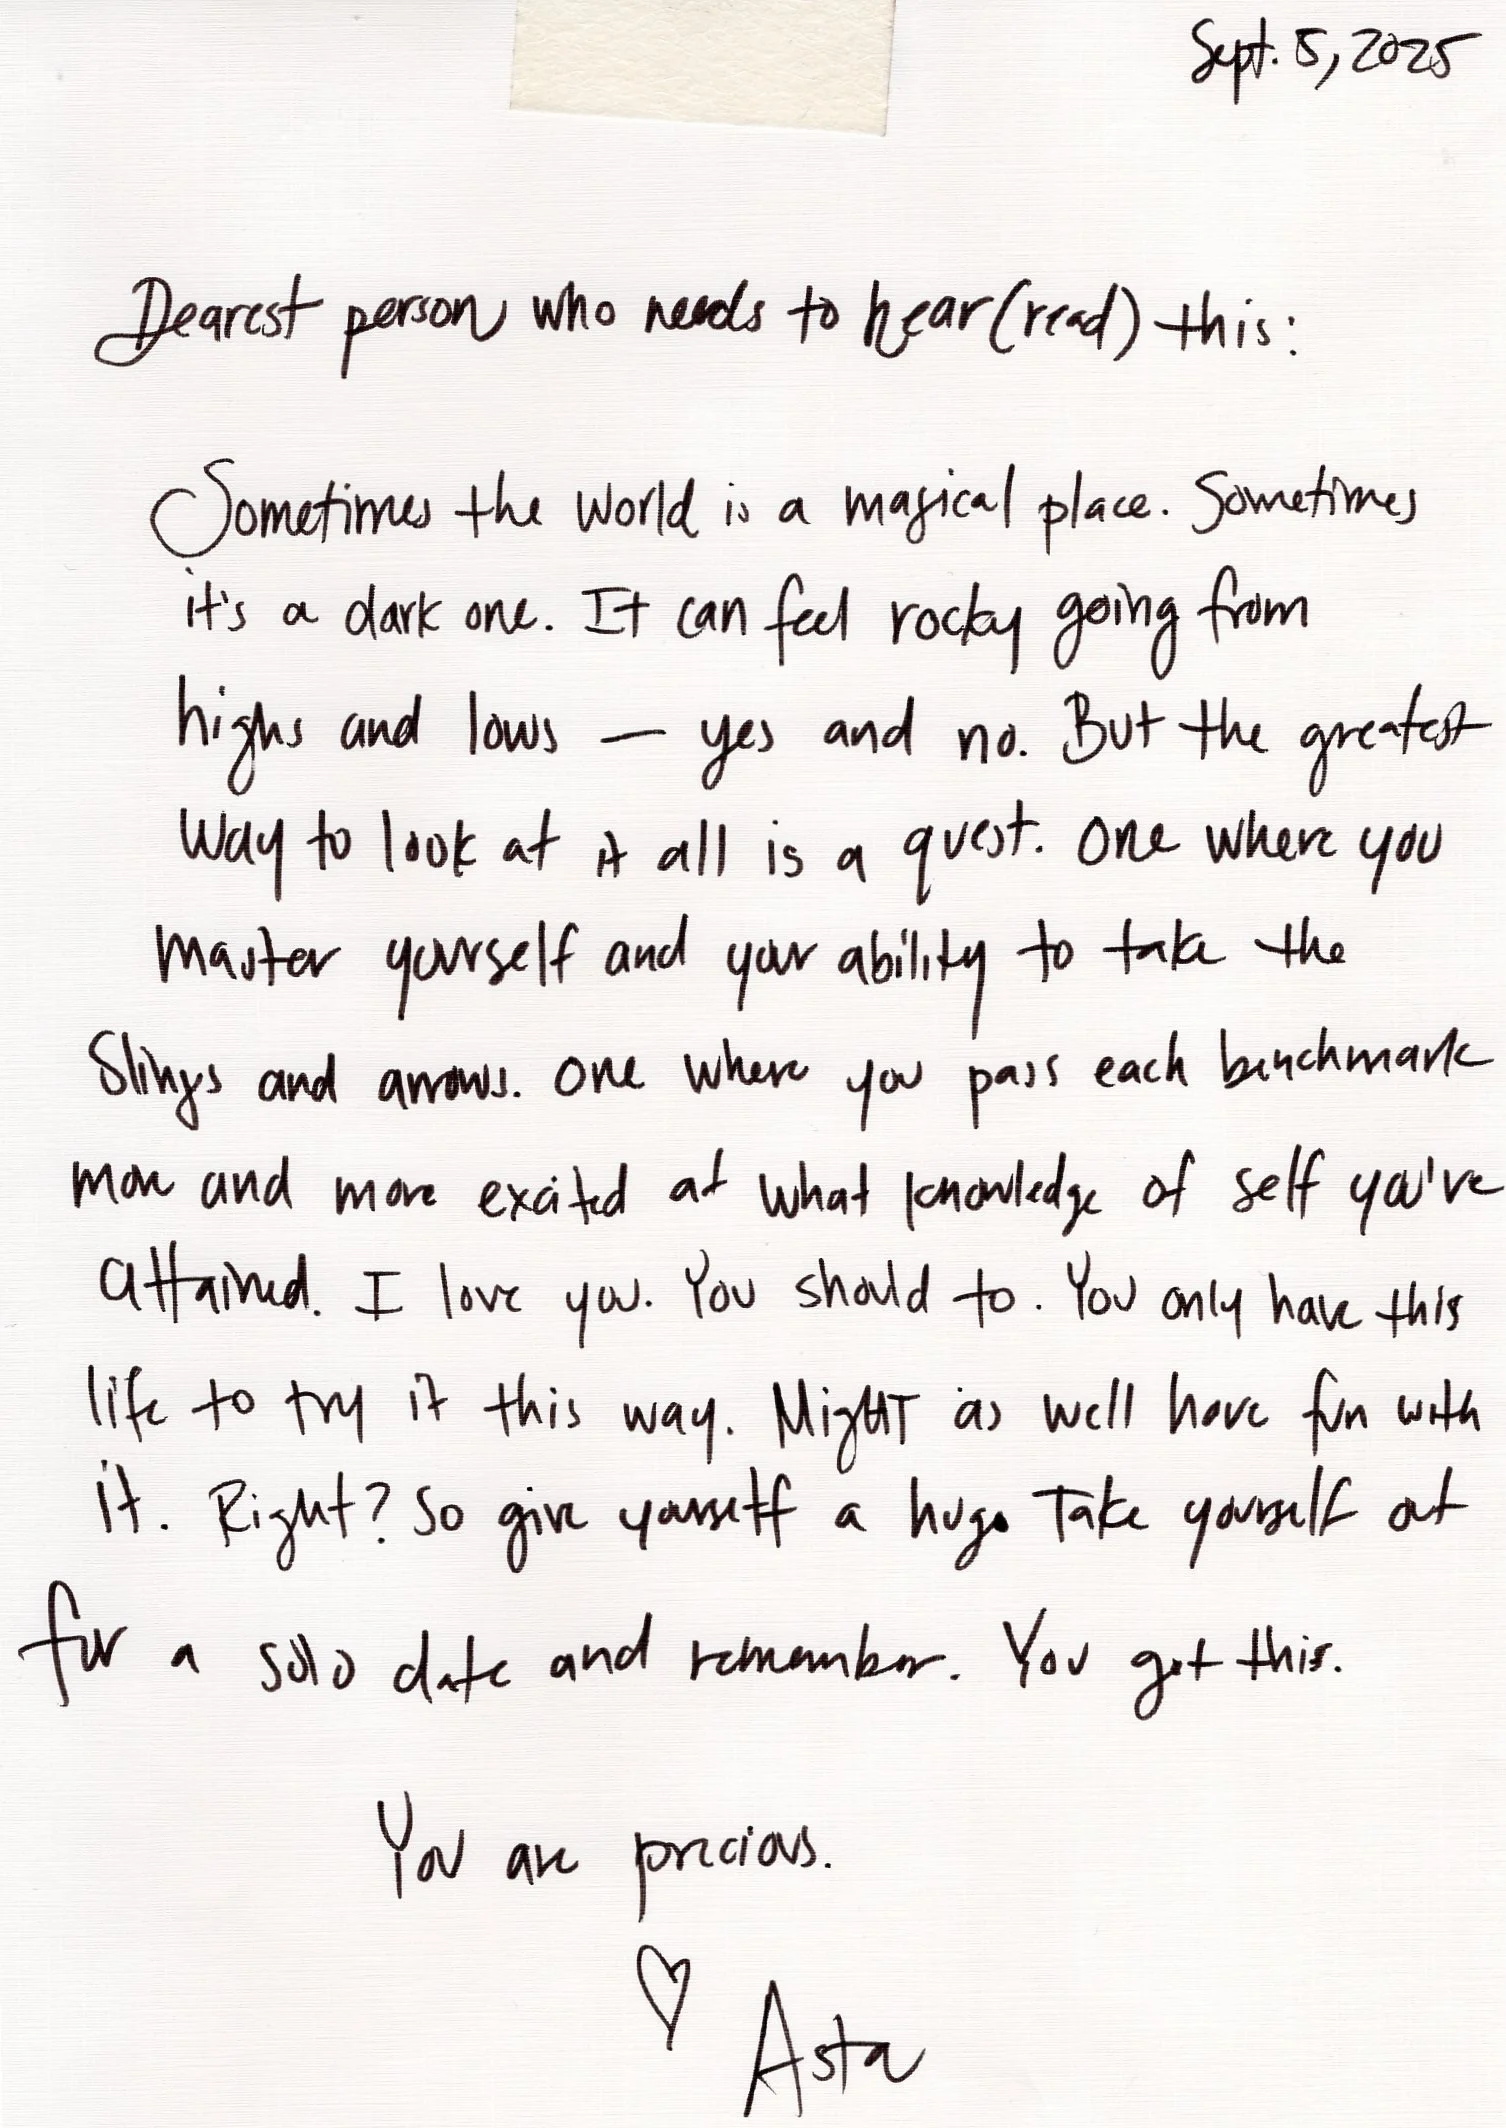 Sept. 5, 2025
Dearest person who needs to hear (read) this:
Sometimes the world is a magical place. Sometimes
it's a dark one. It can feel rocky going from
highs and lows — yes and no. But the greatest
way to look at it all is a quest. One where you
master yourself and your ability to take the
Slings and arrows. One where you pass each benchmark
more and more excited at what knowledge of self you've
attained. I love you. You should to. You only have this
life to try it this way. Might as well have fun with
it. Right? So give yourself a hug. Take yourself out
for a solo date and remember. You got this.
You are precious.
♡ Asta